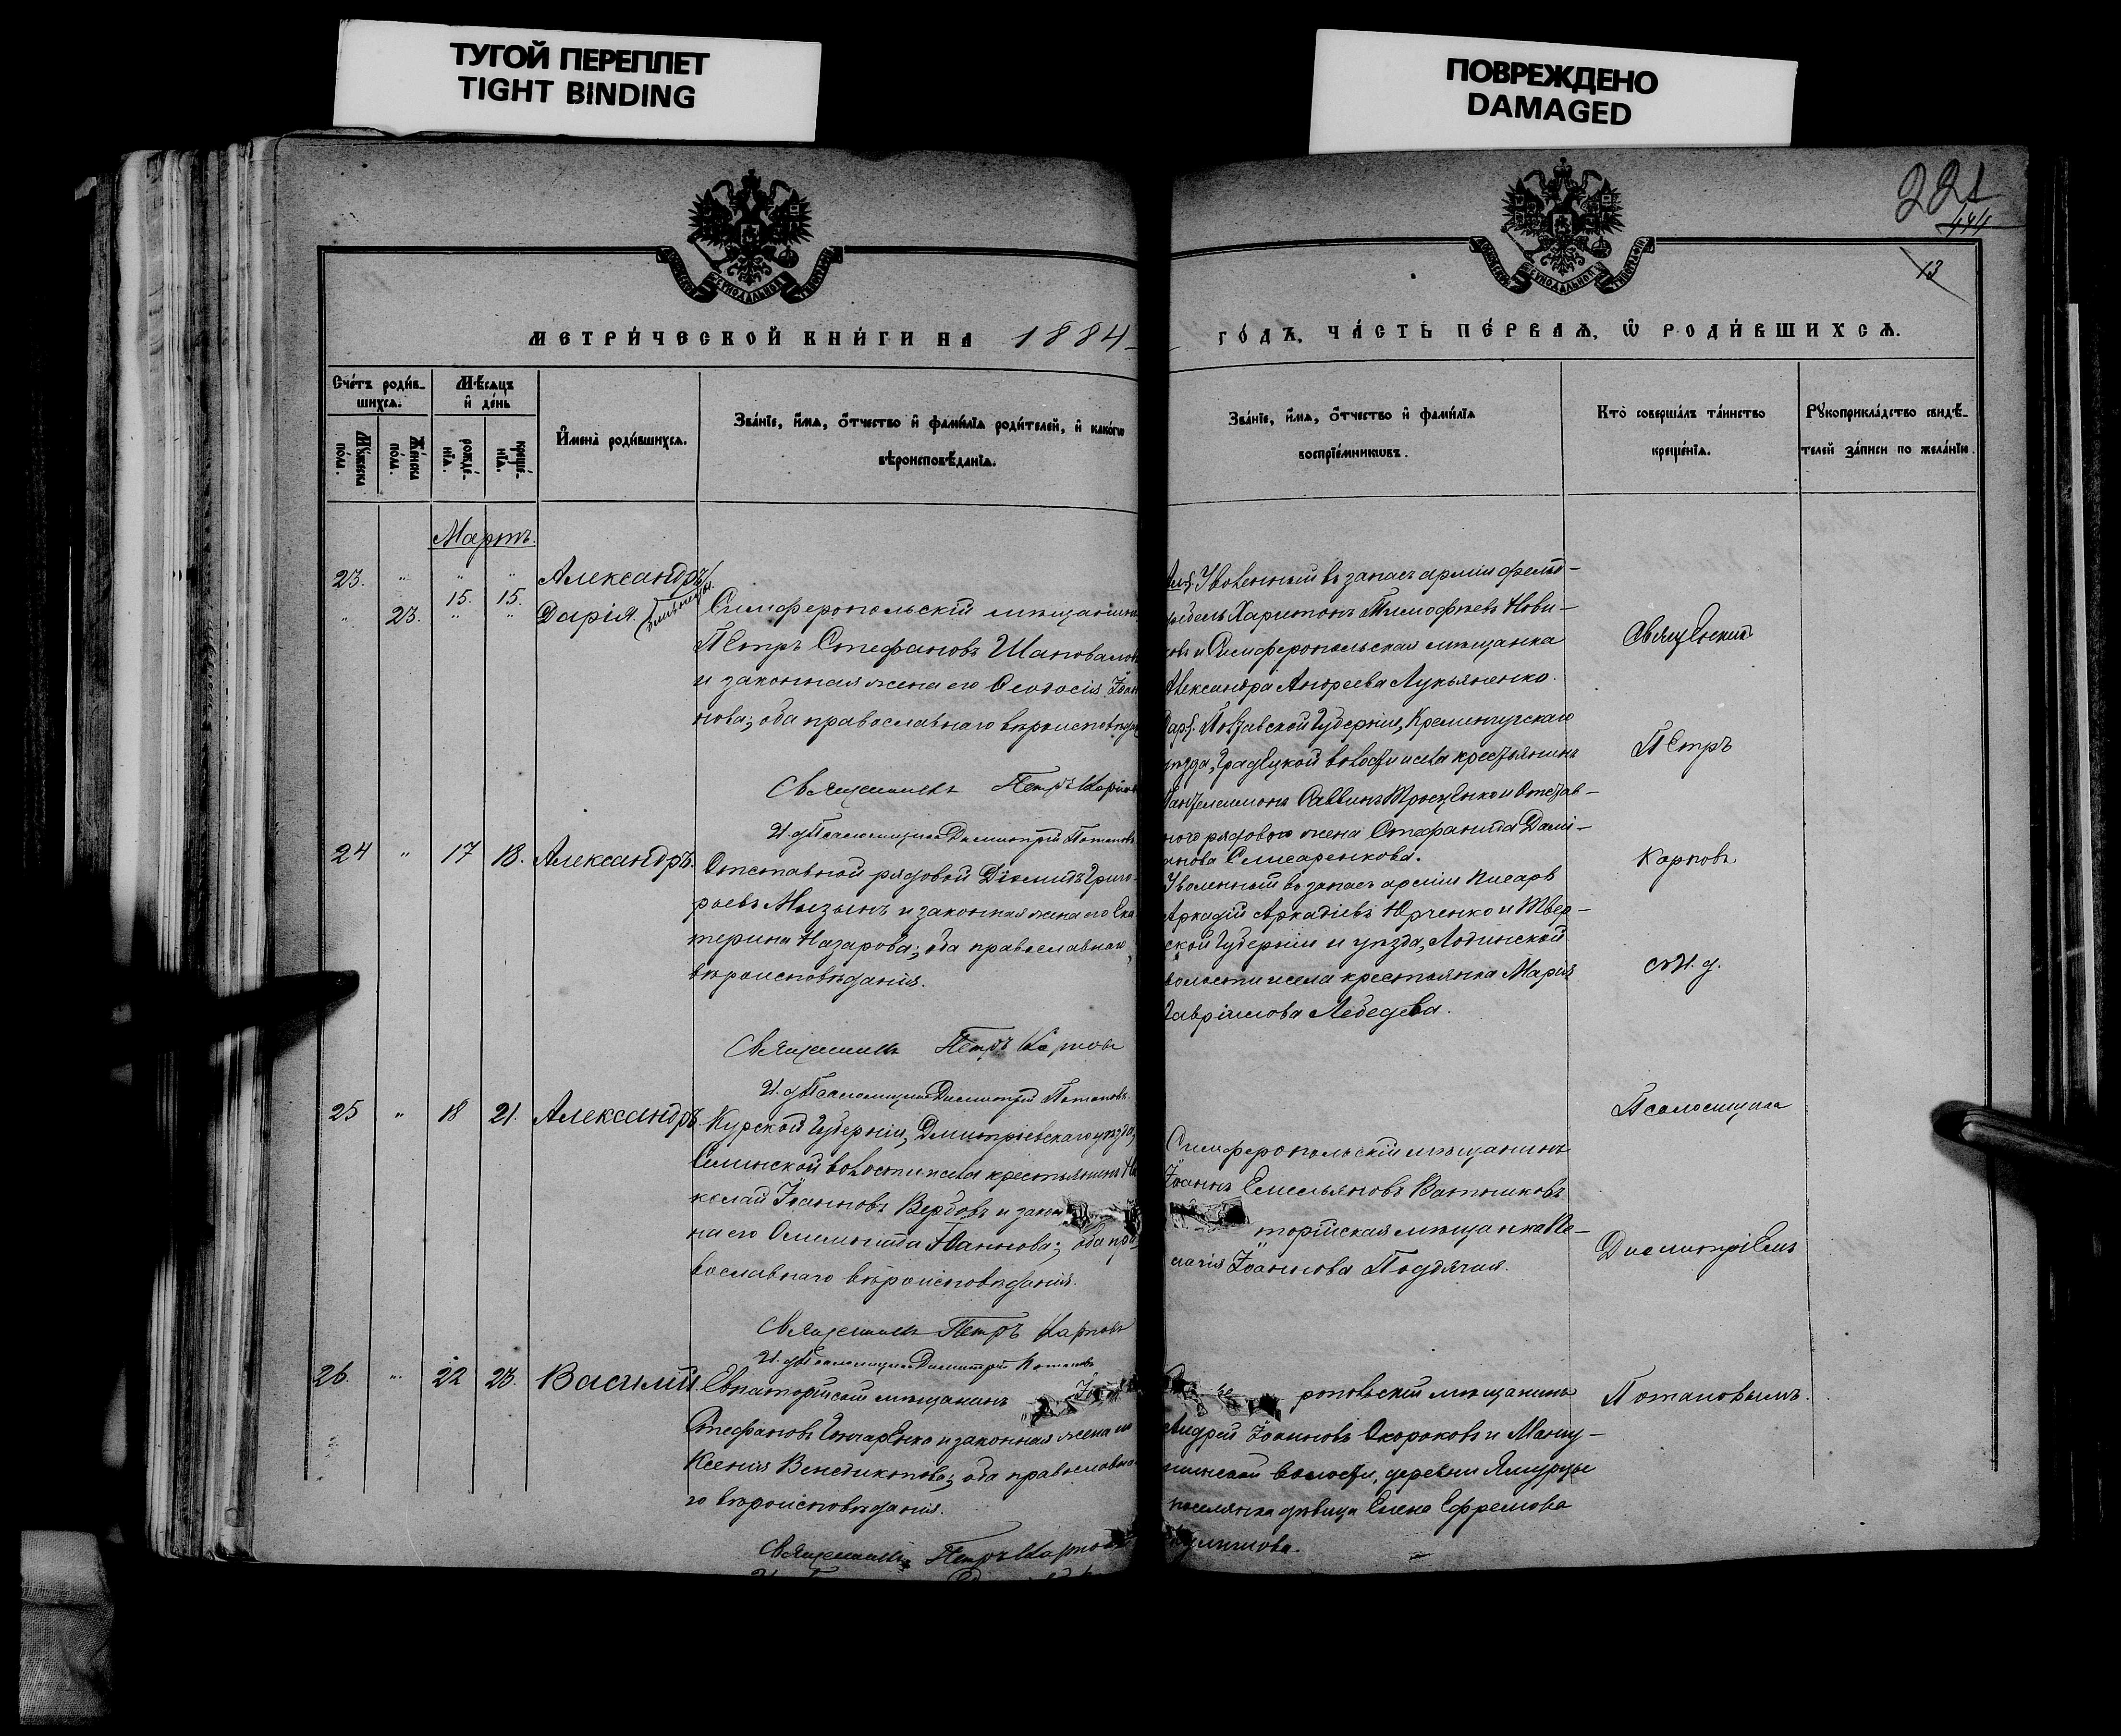 ТУГОЙ ПЕРЕПЛЕТ
TIGHT BINDING
ПОВРЕЖДЕНО
DAMAGED
221
444
13
МЕТРИ́ЧЕСКОЙ КНИ́ГИ НА 1884
ГО́ДЪ, ЧА́СТЬ ПЕ́РВАѦ, Ѡ҆ РОДИ́ВШИХСѦ.
Сче́тъ роди́в-
шихсѧ.
Мꙋ́жеска по́ла.
Же́нска по́ла.
Мѣ́сѧцъ
и҆ де́нь
рожде́-нїѧ.
креще́-нїѧ.
И҆мена̀ роди́вшихсѧ.
Зва́нїе, и҆́мѧ, ѻ҆́тчество и҆ фами́лїѧ роди́телей, и҆ како́гѡ
вѣроисповѣ́данїѧ.
Зва́нїе, и҆́мѧ, ѻ҆́тчество и҆ фами́лїѧ
воспрїе́мникѡвъ.
Кто̀ соверша́лъ та́инство
креще́нїѧ.
Рꙋкоприкла́дство свидѣ́-
телей за́писи по жела́нїю.
Мартъ.
23. " " " Александръ
" 23. 15. 15. Дарія. (близнецы).
Симферопольскій мѣщанинъ
Петръ Стефановъ Шаповаловъ
и законная жена его Ѳеодосія Іоан
нова; оба православнаго вѣроисповѣда
Священникъ Петръ Карповъ
И. д. Псаломщика Димитрій Потаповъ
Уволенный въ запасъ арміи фельд-
фебель Харитонъ Тимофеевъ Нови-
ковъ и Симферопольская мѣщанка
Александра Андреева Лукьяненко.
Полтавской Губерніи, Кременчугскаго
уѣзда, Градицкой волости и села крестьянинъ
Пантелеимонъ Саввинъ и Отстав-
ного рядового жена Стефанида Дамі-
анова Слисаренкова.
24 " 17 18. Александръ.
Отставной рядовой Діомидъ Григо-
рьевъ Мызынъ и законная жена его Ека
терина Назарова; оба православнаго
вѣроисповѣданія.
Священникъ Петръ Карповъ
И. д. Псаломщика Димитрій Потаповъ.
Уволенный въ запасъ арміи писарь
Аркадій Аркадіевъ Юрченко и Твер-
ской Губерніи и уѣзда,
волости и села крестьянка Марія
Гавріилова Лебедева.
25 " 18 21. Александръ.
Курской Губерніи, Дмитріевскаго уѣзда,
волости и села крестьянинъ Ни
колай Іоанновъ Вербовъ и закон
на его Олимпіада Іоаннова; оба пра-
вославнаго вѣроисповѣданія.
Священникъ Петръ Карповъ
И. д. Псаломщика Димитрій Потаповъ
Симферопольскій мѣщанинъ
Іоаннъ Емельяновъ Ватниковъ
торійская мѣщанка Пе-
лагія Іоаннова Поддячая.
26. " 22 23. Василій.
Евпаторійскій мѣщанинъ
Стефановъ Гончаренко и законная жена его
Ксенія Венедиктова; оба православна-
го вѣроисповѣданія.
Священникъ Петръ Карповъ
ропольскій мѣщанинъ
Андрей Іоанновъ Скороковъ и Мангу-
волости, деревни
поселянка дѣвица Елена Ефремова
Священникъ
Петръ
Карповъ
съ И. д.
Псаломщика
Димитріемъ
Потаповымъ.